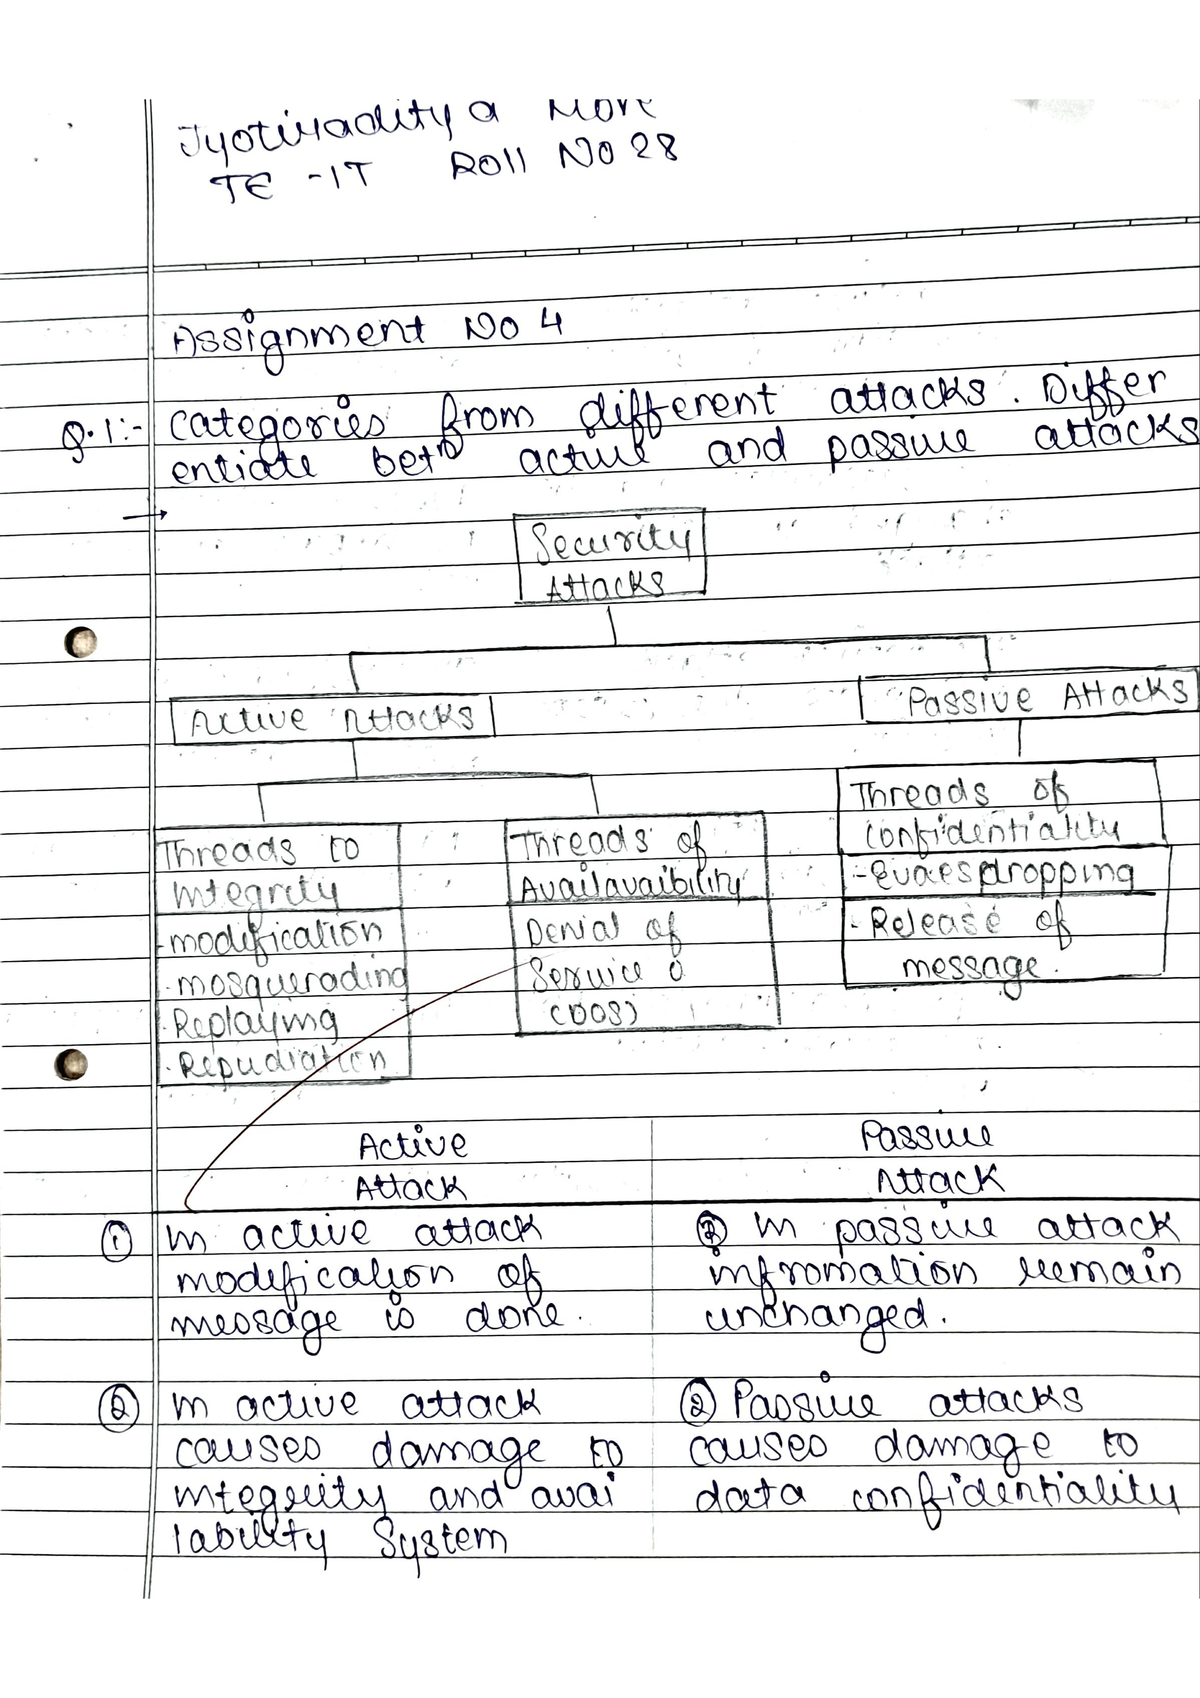 Jyotiraditya a More
TE -IT Roll No 28
Assignment No 4
Q.1:- categories from different attacks. Differ
entiate betn active and passive attacks
Security
Attacks
Active Attacks
Passive Attacks
Threads to
Integrity
-modification
-mosquerading
-Replaying
-Repudiation
Threads of
Availavaibility
Denial of
Service o
(DOS)
Threads of
confidentiality
-evaesdropping
-Release of
message.
Active
Attack
Passive
Attack
① In active attack
modification of
message is done.
① In passive attack
infromation remain
unchanged.
② In active attack
causes damage to
integrity and avai
lability System
② Passive attacks
causes damage to
data confidentiality